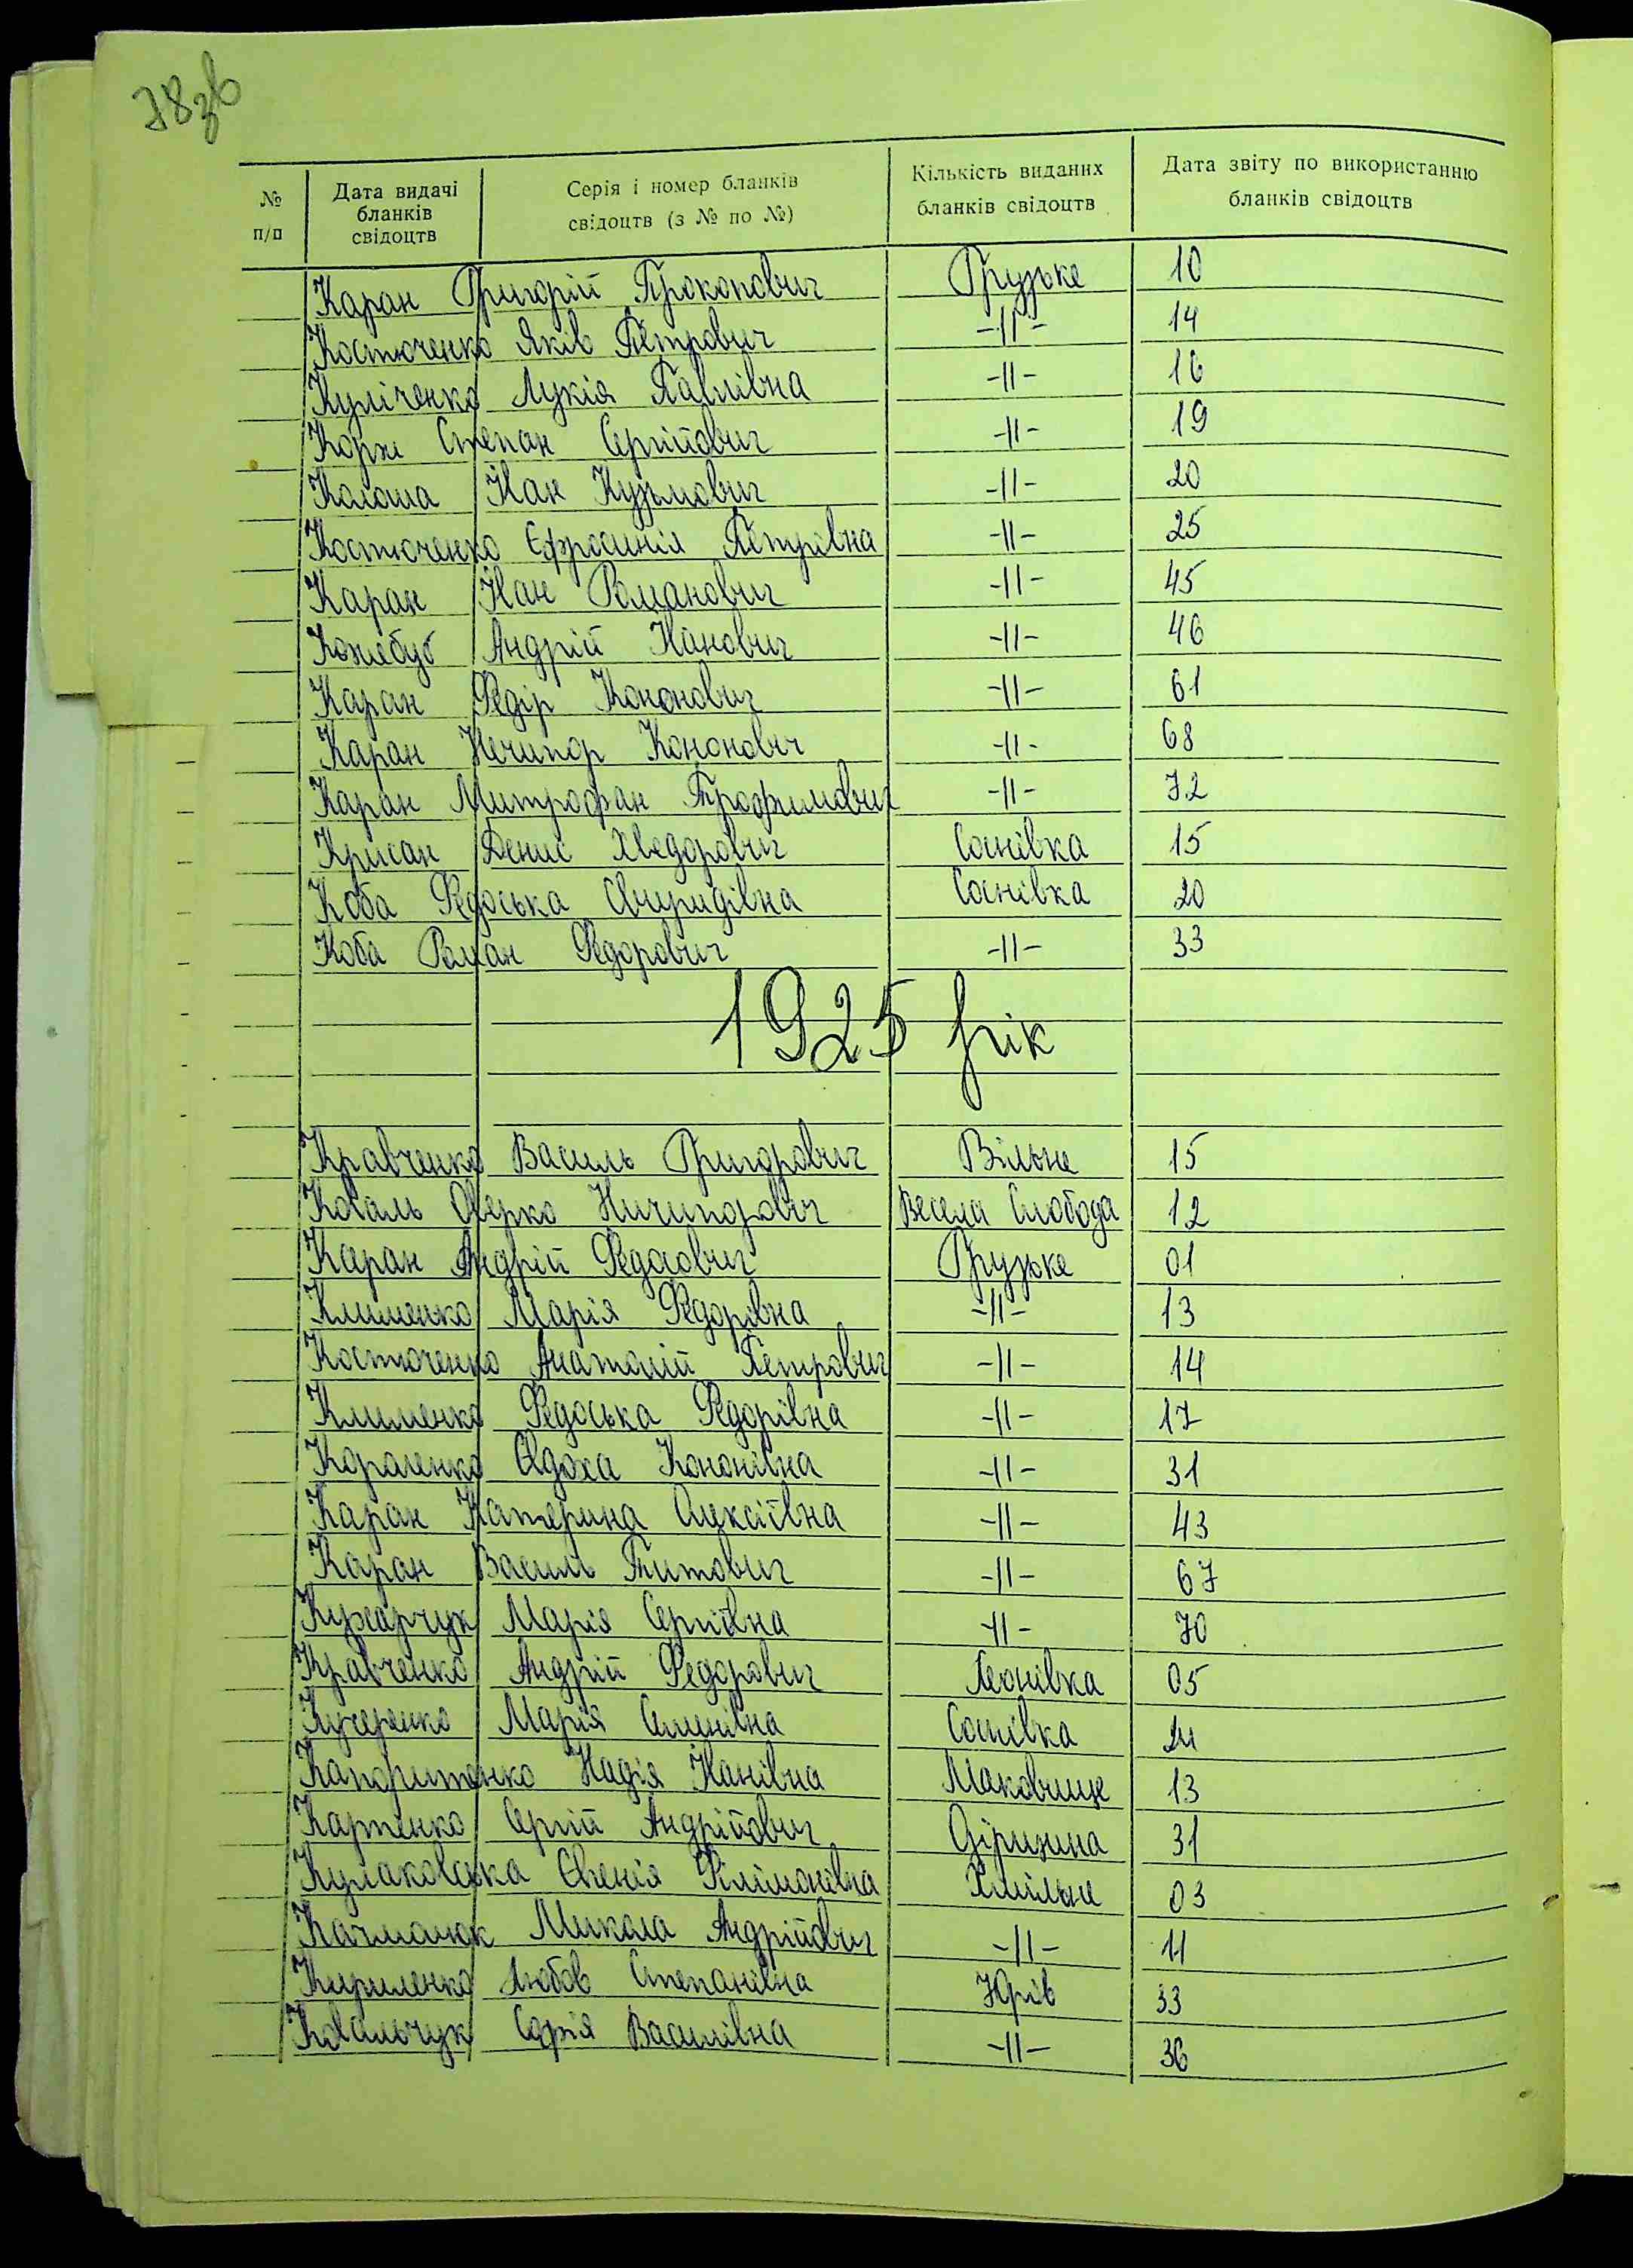 78зв
№ п/п
Дата видачі бланків свідоцтв
Серія і номер бланків свідоцтв (з № по №)
Кількість виданих бланків свідоцтв
Дата звіту по використанню бланків свідоцтв
Каран Григорій Прокопович Грузьке 10
Костюченко Яків Петрович -||- 14
Куліченко Лукія Павлівна -||- 16
Корж Степан Сергійович -||- 19
Калоша Іван Кузьмович -||- 20
Костюченко Єфросинія Петрівна -||- 25
Каран Іван Романович -||- 45
Кожебуб Андрій Іванович -||- 46
Каран Федір Кононович -||- 61
Каран Нечипор Кононович -||- 68
Каран Митрофан Трофимович -||- 72
Крисан Денис Хведорович Соснівка 15
Коба Федоська Свиридівна Соснівка 20
Коба Роман Федорович -||- 33
1925 рік
Кравченко Василь Григорович Вільне 15
Коваль Оверко Ничипорович Весела Слобода 12
Каран Андрій Федосович Грузьке 01
Клименко Марія Федорівна -||- 13
Костюченко Анатолій Петрович -||- 14
Клименко Федоська Федорівна -||- 17
Короленко Євдоха Кононівна -||- 31
Каран Катерина Олексіївна -||- 43
Каран Василь Титович -||- 67
Кухарчук Марія Сергіївна -||- 70
Кравченко Андрій Федорович Леонівка 05
Кучеренко Марія Семенівна Соснівка
Надія Іванівна Маковище 13
Карпенко Сергій Андрійович 31
Кулаковська Євгенія Філімонівна Хмільне 03
Качманюк Микола Андрійович -||- 11
Кириленко Любов Степанівна Юрів 33
Ковальчук Софія Василівна -||- 36